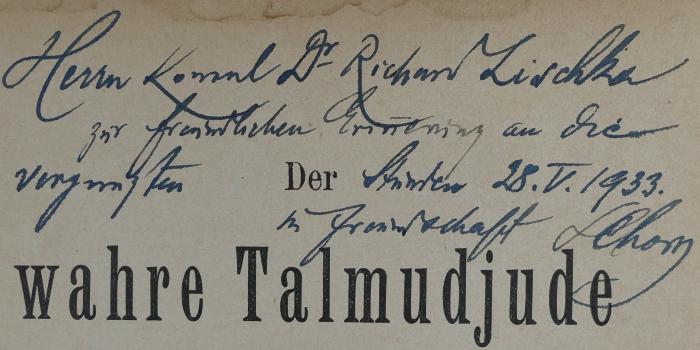 Herrn Konsul Dr Richard Lischka
zur freundlichen Erinnerung an die
vergnügten Der Stunden 28.V.1933.
in Freundschaft
wahre Talmudjude